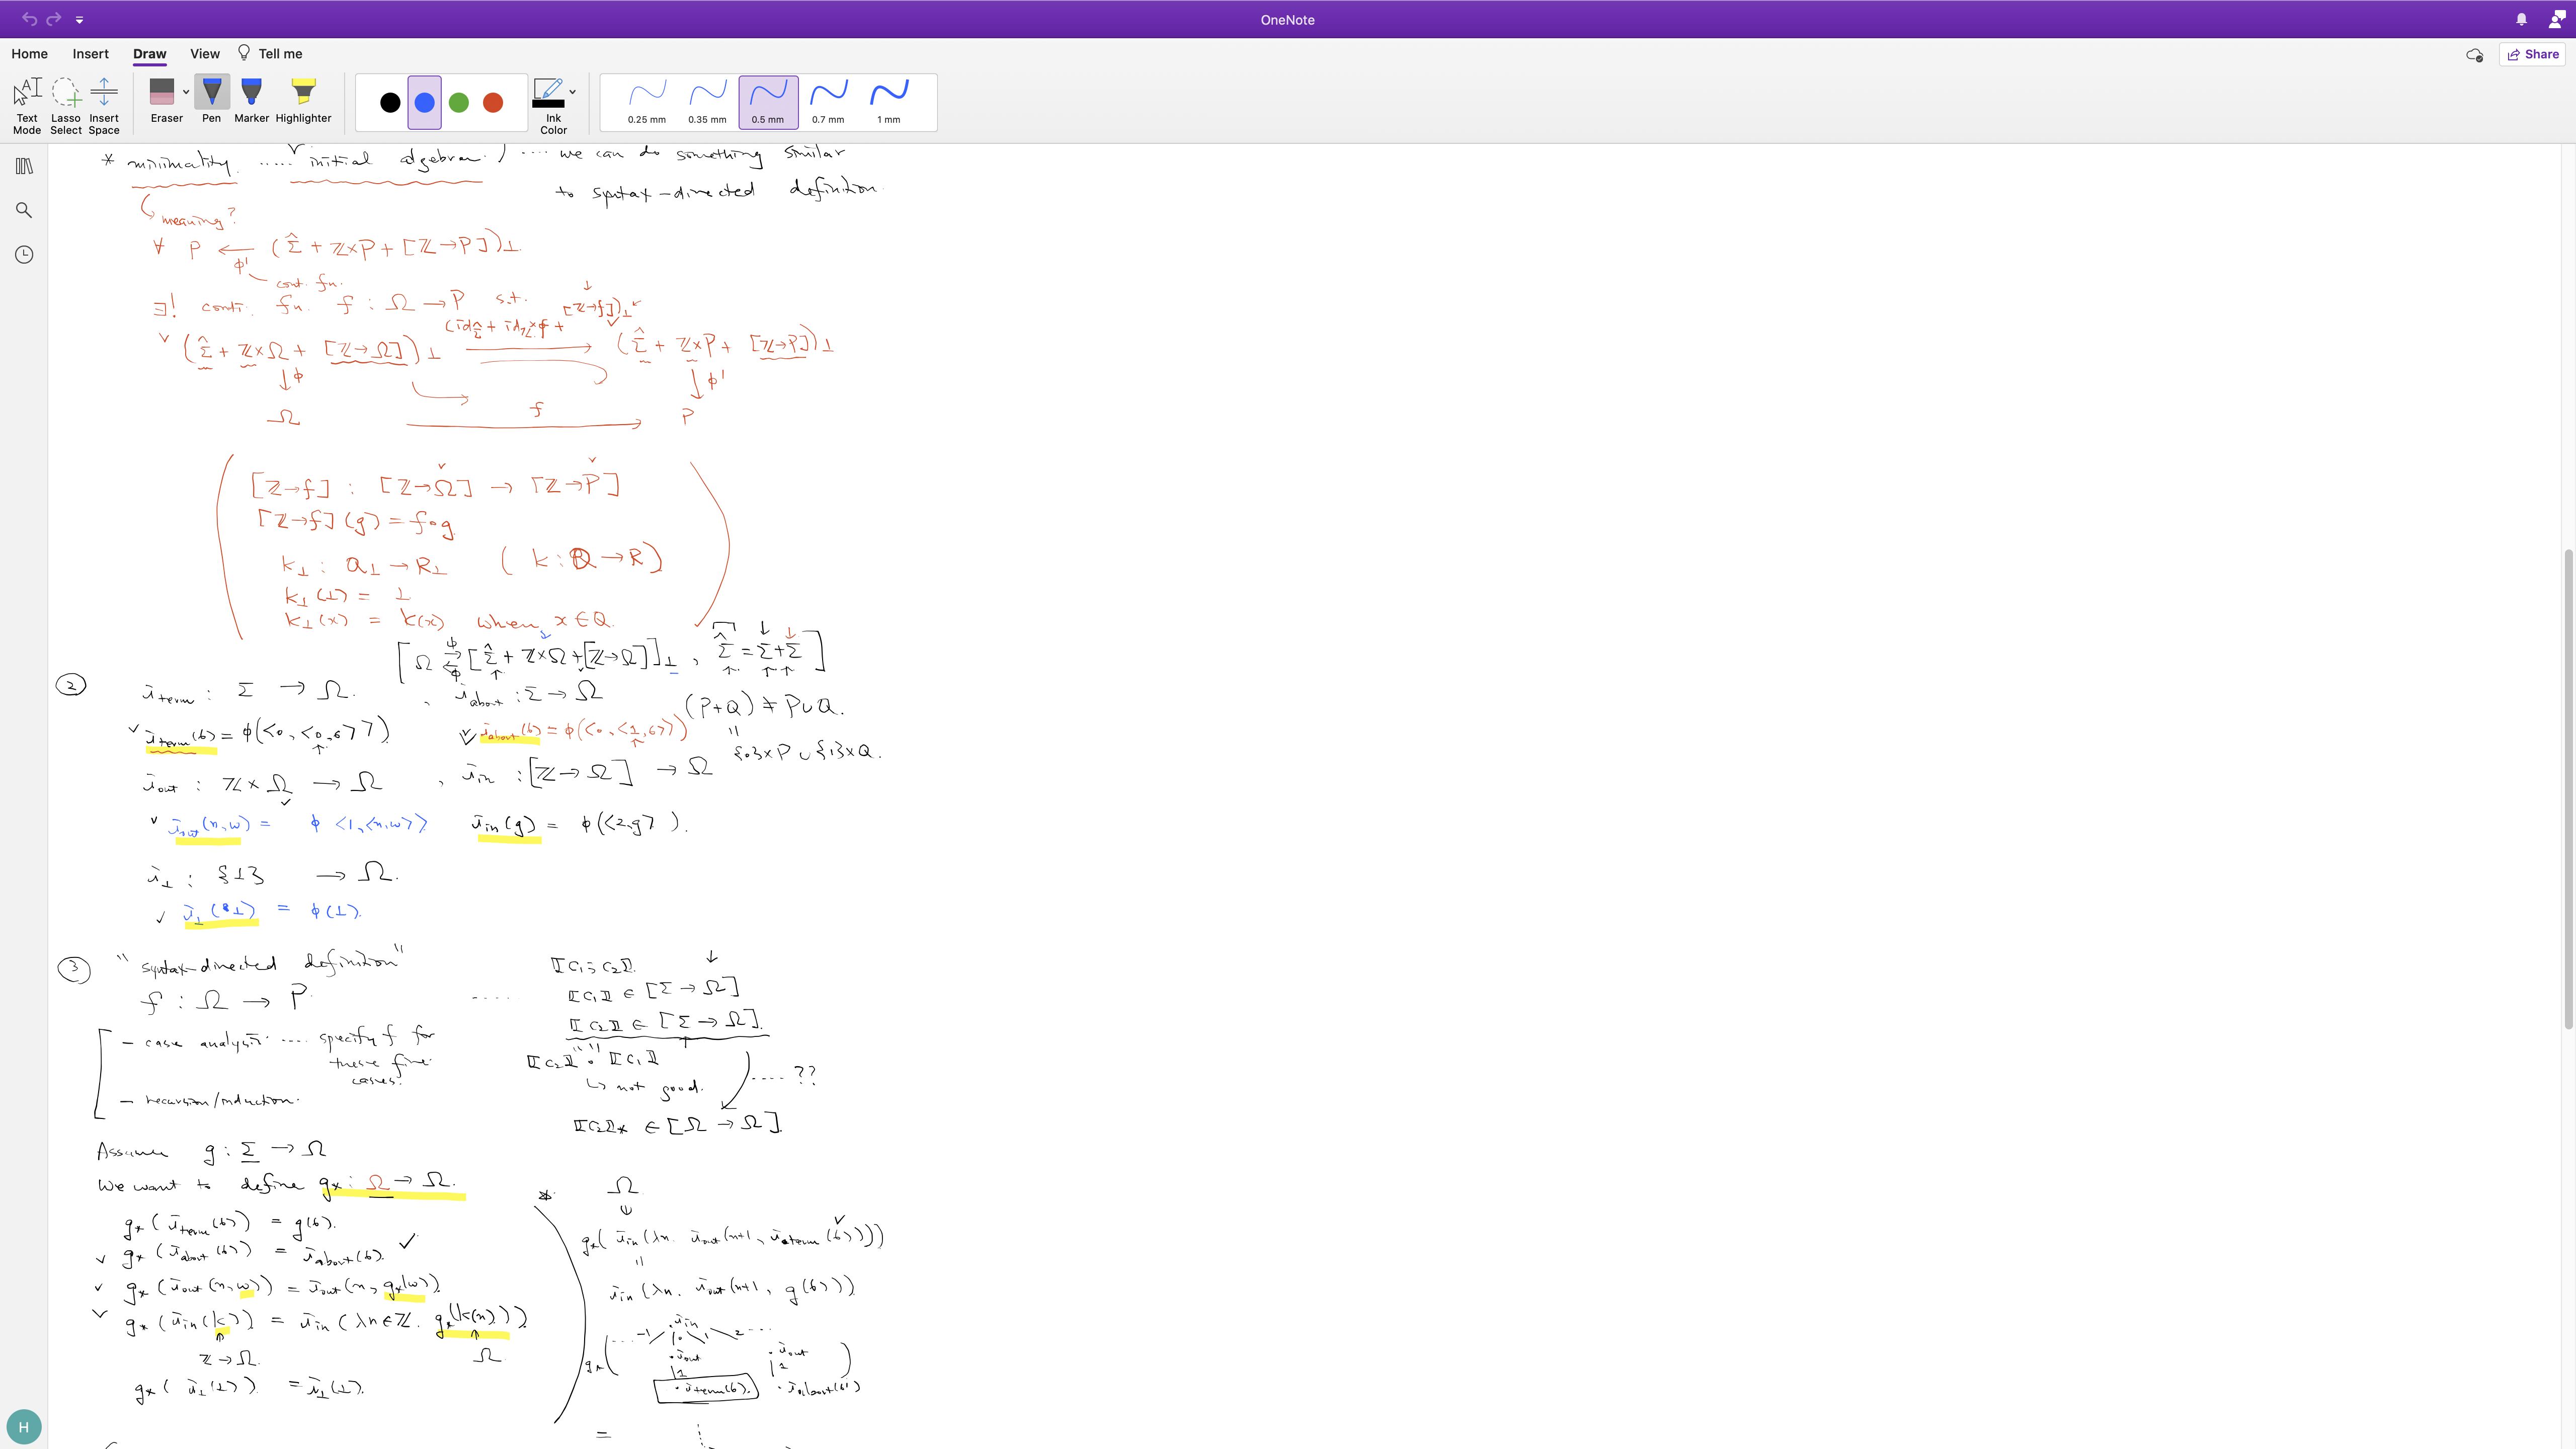 OneNote
Home Insert Draw View Tell me
Share
Text Mode
Lasso Select
Insert Space
Eraser
Pen
Marker
Highlighter
Ink Color
0.25 mm
0.35 mm
0.5 mm
0.7 mm
1 mm
* minimality ..... initial algebra.) .... we can do something similar
to syntax-directed definition.
meaning?
∀ P ← (Σ̂ + ℤ×P + [ℤ→P])⊥.
φ'
cont. fn.
∃! conti. fn. f : Ω → P s.t.
(id_Σ̂ + id_ℤ×f + [ℤ→f])⊥
(Σ̂ + ℤ×Ω + [ℤ→Ω])⊥ → (Σ̂ + ℤ×P + [ℤ→P])⊥
↓φ ↓φ'
Ω f → P
[ℤ→f] : [ℤ→Ω] → [ℤ→P]
[ℤ→f](g) = f∘g
k⊥ : Q⊥ → R⊥ ( k : Q → R )
k⊥(⊥) = ⊥
k⊥(x) = k(x) when x ∈ Q.
[ Ω ⇄ [Σ̂ + ℤ×Ω + [ℤ→Ω]]⊥ , Σ̂ = Σ+Σ ]
② ι_term : Σ → Ω. , ι_abort : Σ → Ω
(P+Q) ≠ P∪Q.
ι_term(σ) = φ(<0, <0,σ>>) ι_abort(σ) = φ(<0, <1,σ>>)
"
{0}×P ∪ {1}×Q.
ι_out : ℤ×Ω → Ω , ι_in : [ℤ→Ω] → Ω
ι_out(n,w) = φ <1,<n,w>> ι_in(g) = φ(<2,g>).
ι⊥ : {⊥} → Ω.
ι⊥(⊥) = φ(⊥).
③ "syntax-directed definition"
f : Ω → P. ....
⟦c1;c2⟧.
⟦c1⟧ ∈ [Σ → Ω]
⟦c2⟧ ∈ [Σ → Ω].
- case analysis .... specify f for
these five
cases.
- recursion/induction.
⟦c2⟧ "∘" ⟦c1⟧
↳ not good. .... ??
⟦c2⟧* ∈ [Ω → Ω].
Assume g : Σ → Ω
We want to define g* : Ω → Ω.
g*(ι_term(σ)) = g(σ).
g*(ι_abort(σ)) = ι_abort(σ). ✓
g*(ι_out(n,w)) = ι_out(n, g*(w)).
g*(ι_in(k)) = ι_in(λn∈ℤ. g*(k(n))).
ℤ→Ω. Ω
g*(ι⊥(⊥)) = ι⊥(⊥).
* Ω
g*(ι_in(λn. ι_out(n+1, ι_term(σ))))
"
ι_in(λn. ι_out(n+1, g(σ)))
.ι_in
.... -1 0 1 2 ....
g*(
.ι_out .ι_out
1 2
.ι_term(σ). .ι_abort(σ')
)
=
H